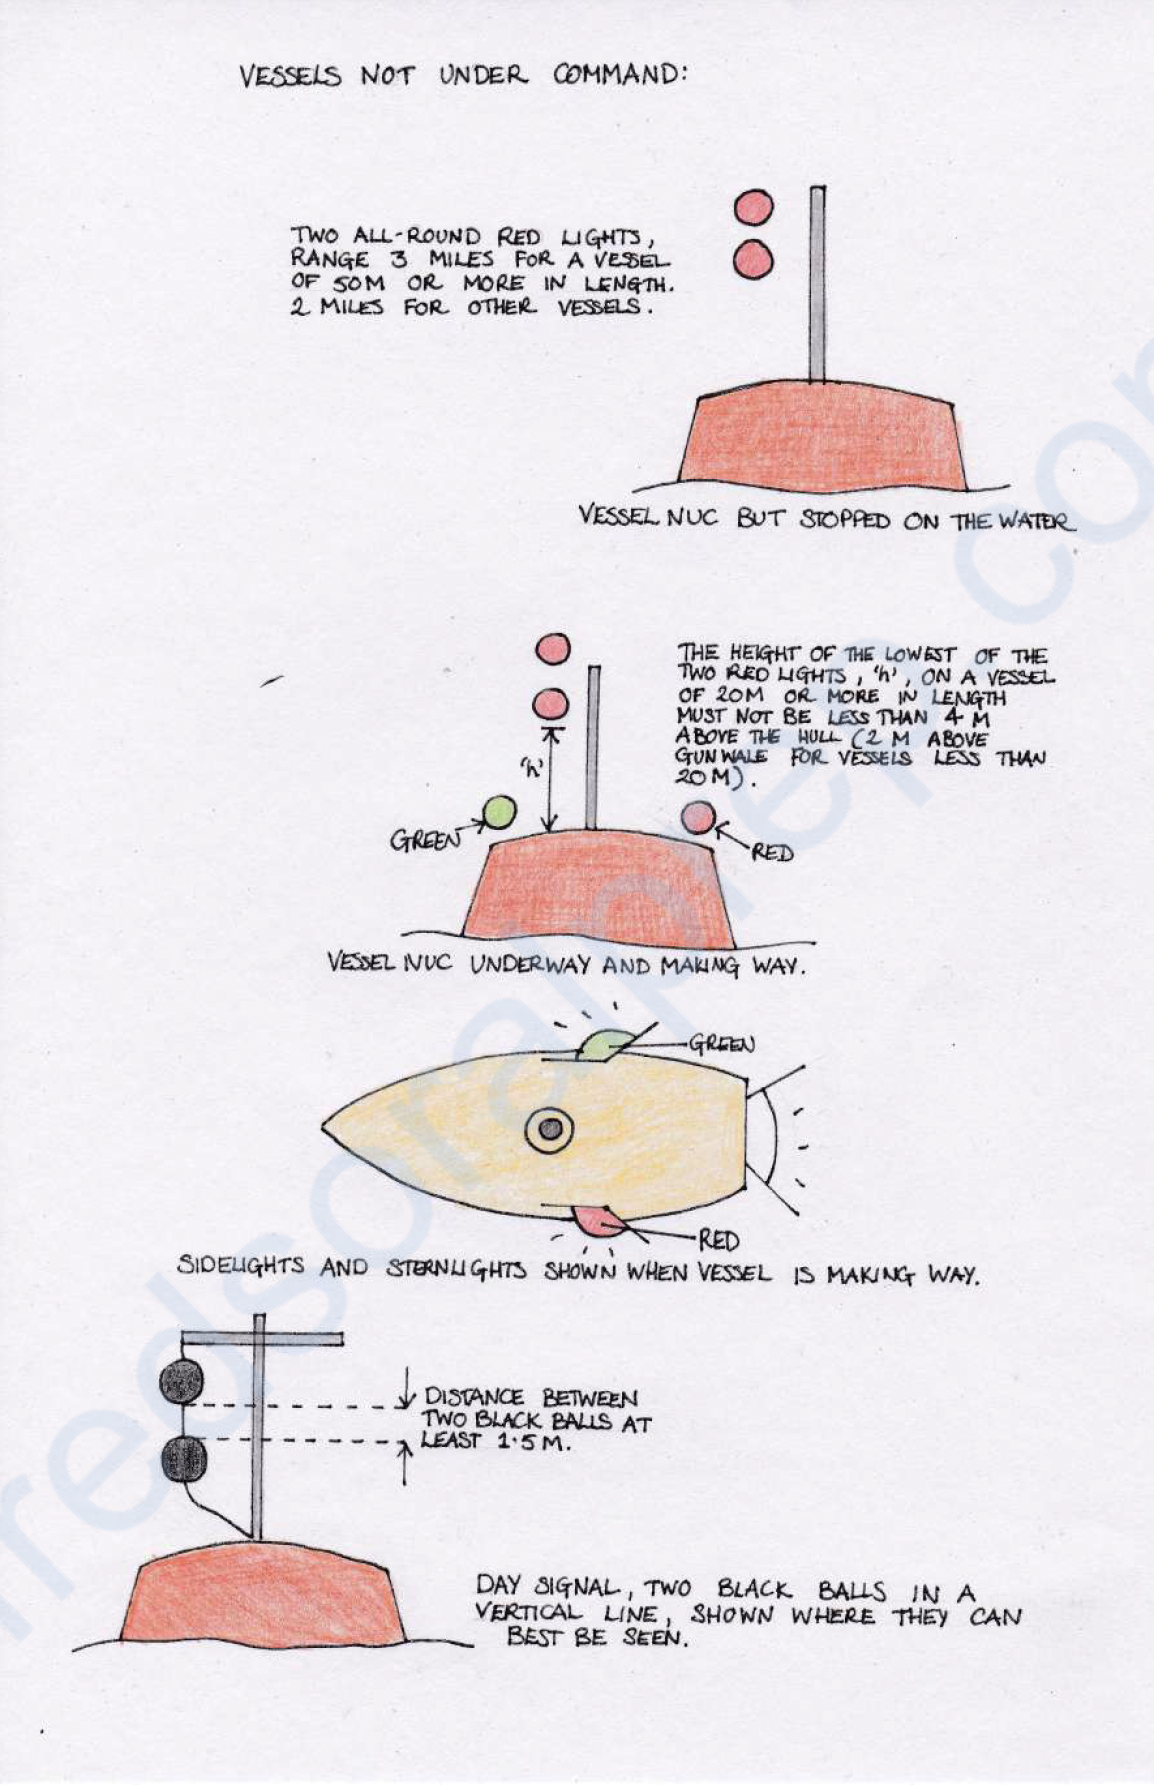 VESSELS NOT UNDER COMMAND:
TWO ALL-ROUND RED LIGHTS,
RANGE 3 MILES FOR A VESSEL
OF 50M OR MORE IN LENGTH.
2 MILES FOR OTHER VESSELS.
VESSEL NUC BUT STOPPED ON THE WATER
THE HEIGHT OF THE LOWEST OF THE
TWO RED LIGHTS, 'h', ON A VESSEL
OF 20M OR MORE IN LENGTH
MUST NOT BE LESS THAN 4 M
ABOVE THE HULL (2 M ABOVE
GUNWALE FOR VESSELS LESS THAN
20M).
'h'
GREEN
RED
VESSEL NUC UNDERWAY AND MAKING WAY.
GREEN
RED
SIDELIGHTS AND STERNLIGHTS SHOWN WHEN VESSEL IS MAKING WAY.
DISTANCE BETWEEN
TWO BLACK BALLS AT
LEAST 1.5M.
DAY SIGNAL, TWO BLACK BALLS IN A
VERTICAL LINE, SHOWN WHERE THEY CAN
BEST BE SEEN.